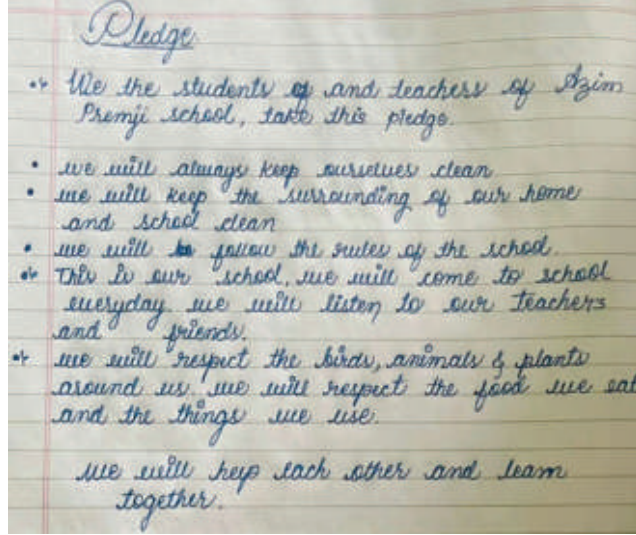 Pledge
We the students of and teachers of Azim
Premji school, take this pledge.
• we will always keep ourselves clean
• we will keep the surrounding of our home
and school clean
• we will follow the rules of the school.
This is our school, we will come to school
everyday we will listen to our Teachers
and friends.
we will respect the birds, animals & plants
around us we will respect the food we eat
and the things we use.
we will help each other and learn
together.